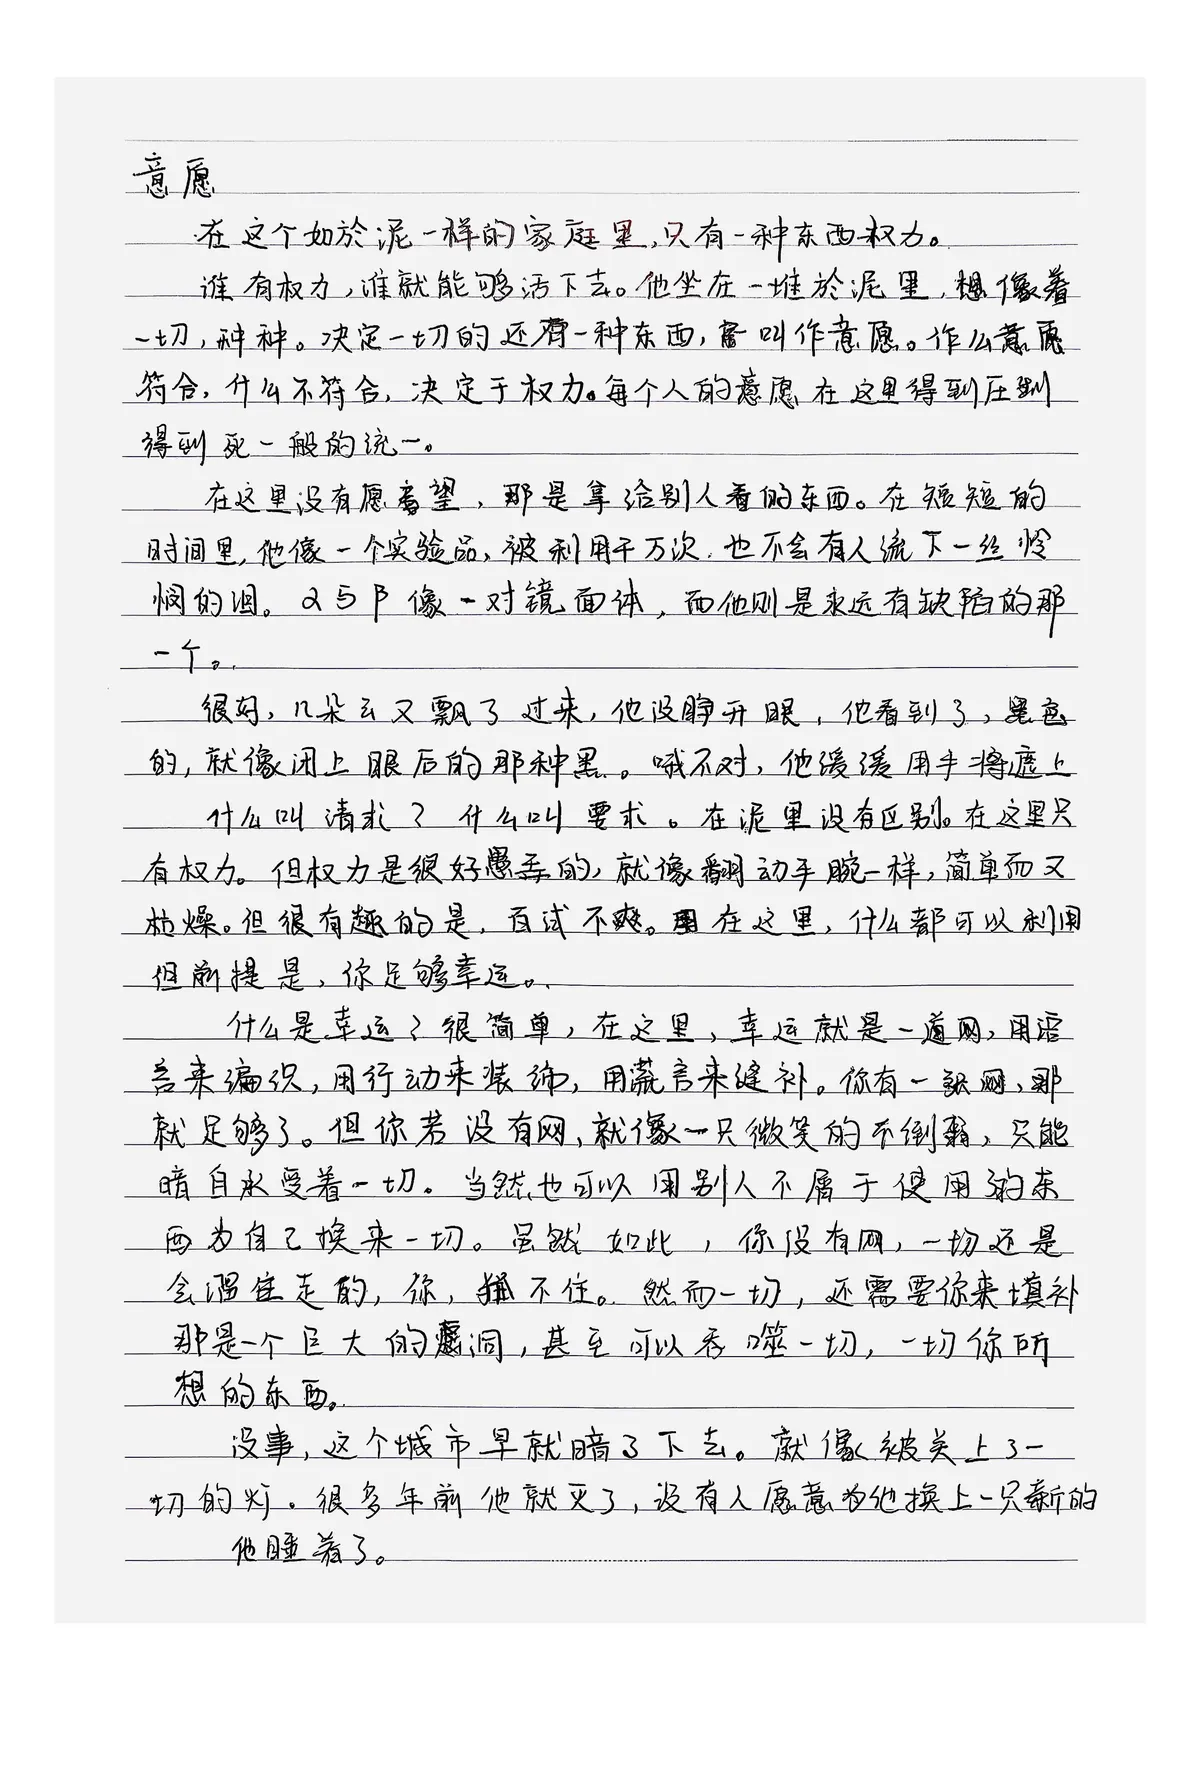 意愿
在这个如於泥一样的家庭里,只有一种东西权力。
谁有权力,谁就能够活下去。他坐在一堆於泥里,想像着
一切,种种。决定一切的还有一种东西,叫作意愿。作么意愿
符合,什么不符合,决定于权力。每个人的意愿在这里得到压制
得到死一般的统一。
在这里没有愿望,那是拿给别人看的东西。在短短的
时间里,他像一个实验品,被利用千万次.也不会有人流下一丝怜
悯的泪。α与β像一对镜面体,而他则是永远有缺陷的那
一个。
很好,几朵云又飘了过来,他没睁开眼,他看到了,黑色
的,就像闭上眼后的那种黑。哦不对,他缓缓用手将遮上
什么叫请求?什么叫要求。在泥里没有区别。在这里只
有权力。但权力是很好愚弄的,就像翻动手腕一样,简单而又
枯燥。但很有趣的是,百试不爽。在这里,什么都可以利用
但前提是,你足够幸运。
什么是幸运?很简单,在这里,幸运就是一道网,用语
言来编织,用行动来装饰,用谎言来缝补。你有一张网,那
就足够了。但你若没有网,就像一只微笑的不倒翁,只能
暗自承受着一切。当然,也可以用别人不属于使用的东
西为自己换来一切。虽然如此,你没有网,一切还是
会溜走的,你,抓不住。然而一切,还需要你来填补
那是一个巨大的洞,甚至可以吞噬一切,一切你所
想的东西。
没事,这个城市早就暗了下去。就像被关上了一
切的灯.很多年前他就灭了,没有人愿意为他换上一只新的
他睡着了。